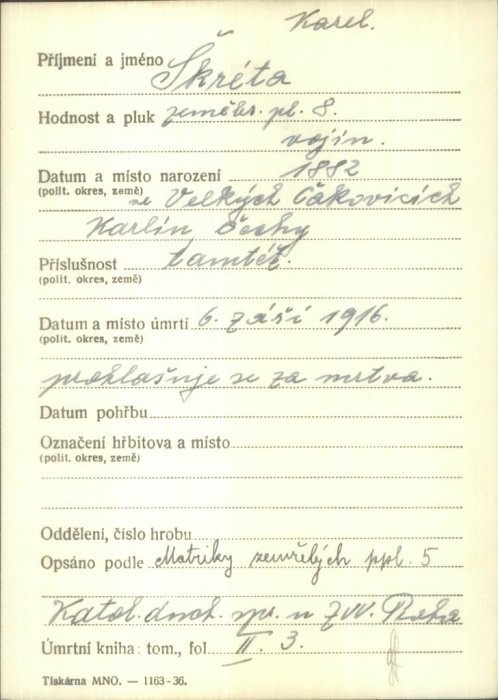 Karel.
Příjmení a jméno Škréta
Hodnost a pluk zeměbr. pl. 8.
vojín.
Datum a místo narození 1882
(polit. okres, země) ve Velkých Čakovicích
Karlín, Čechy
Příslušnost tamtéž.
(polit. okres, země)
Datum a místo úmrtí 6. září 1916.
(polit. okres, země)
prohlašuje se za mrtva.
Datum pohřbu
Označení hřbitova a místo
(polit. okres, země)
Oddělení, číslo hrobu
Opsáno podle Matriky zemřelých ppl. 5
Katol. duch. spr. u ZVV. Praha
Úmrtní kniha: tom., fol. II. 3.
Tiskárna MNO. — 1163-36.